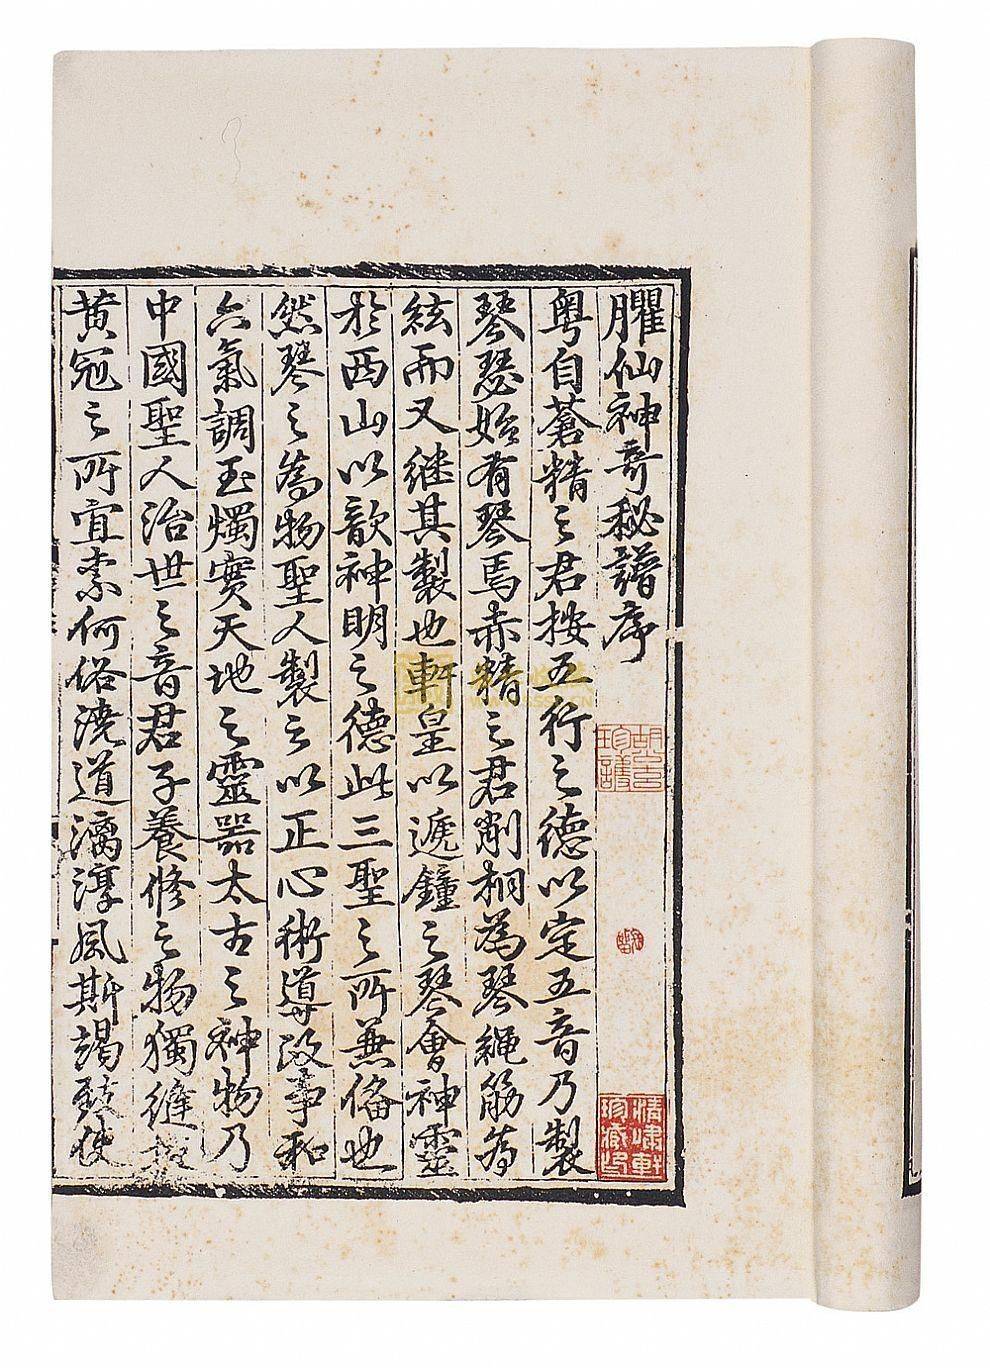 臞仙神奇秘譜序
粤自蒼精之君按五行之德以定五音乃製
琴瑟始有琴焉赤精之君削桐為琴繩筋為
絃而又继其製也軒皇以遞鐘之琴會神靈
於西山以歆神明之德此三聖之所兼俻也
然琴之為物聖人製之以正心術導政事和
六氣調玉燭實天地之靈噐太古之神物乃
中國聖人治世之音君子養修之物獨縫掖
黄冠之所宜柰何俗澆道漓淳風斯竭致使
清嘯軒
珍藏印